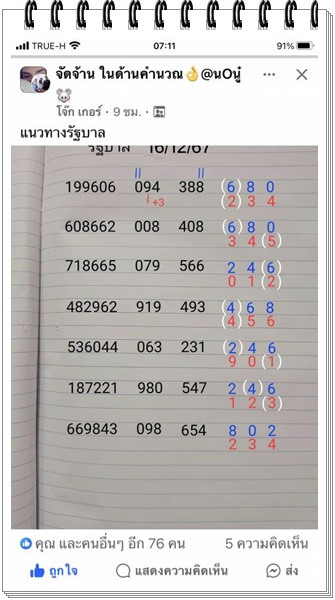 TRUE-H 07:11 91%
จัดจ้าน ในด้านคำนวณ👌@นOนู๋ ... ×
🐨
โจ๊ก เกอร์ · 9 ชม. ·
แนวทางรัฐบาล
รัฐบาล 16/12/67
199606 094 388 (6) 8 0
+3 (2) 3 4
608662 008 408 (6) 8 0
3 4 (5)
718665 079 566 2 4 (6)
0 1 (2)
482962 919 493 (4) 6 8
(4) 5 6
536044 063 231 (2) 4 6
9 0 (1)
187221 980 547 2 (4) 6
1 2 (3)
669843 098 654 8 0 2
2 3 4
คุณ และคนอื่นๆ อีก 76 คน 5 ความคิดเห็น
ถูกใจ แสดงความคิดเห็น ส่ง